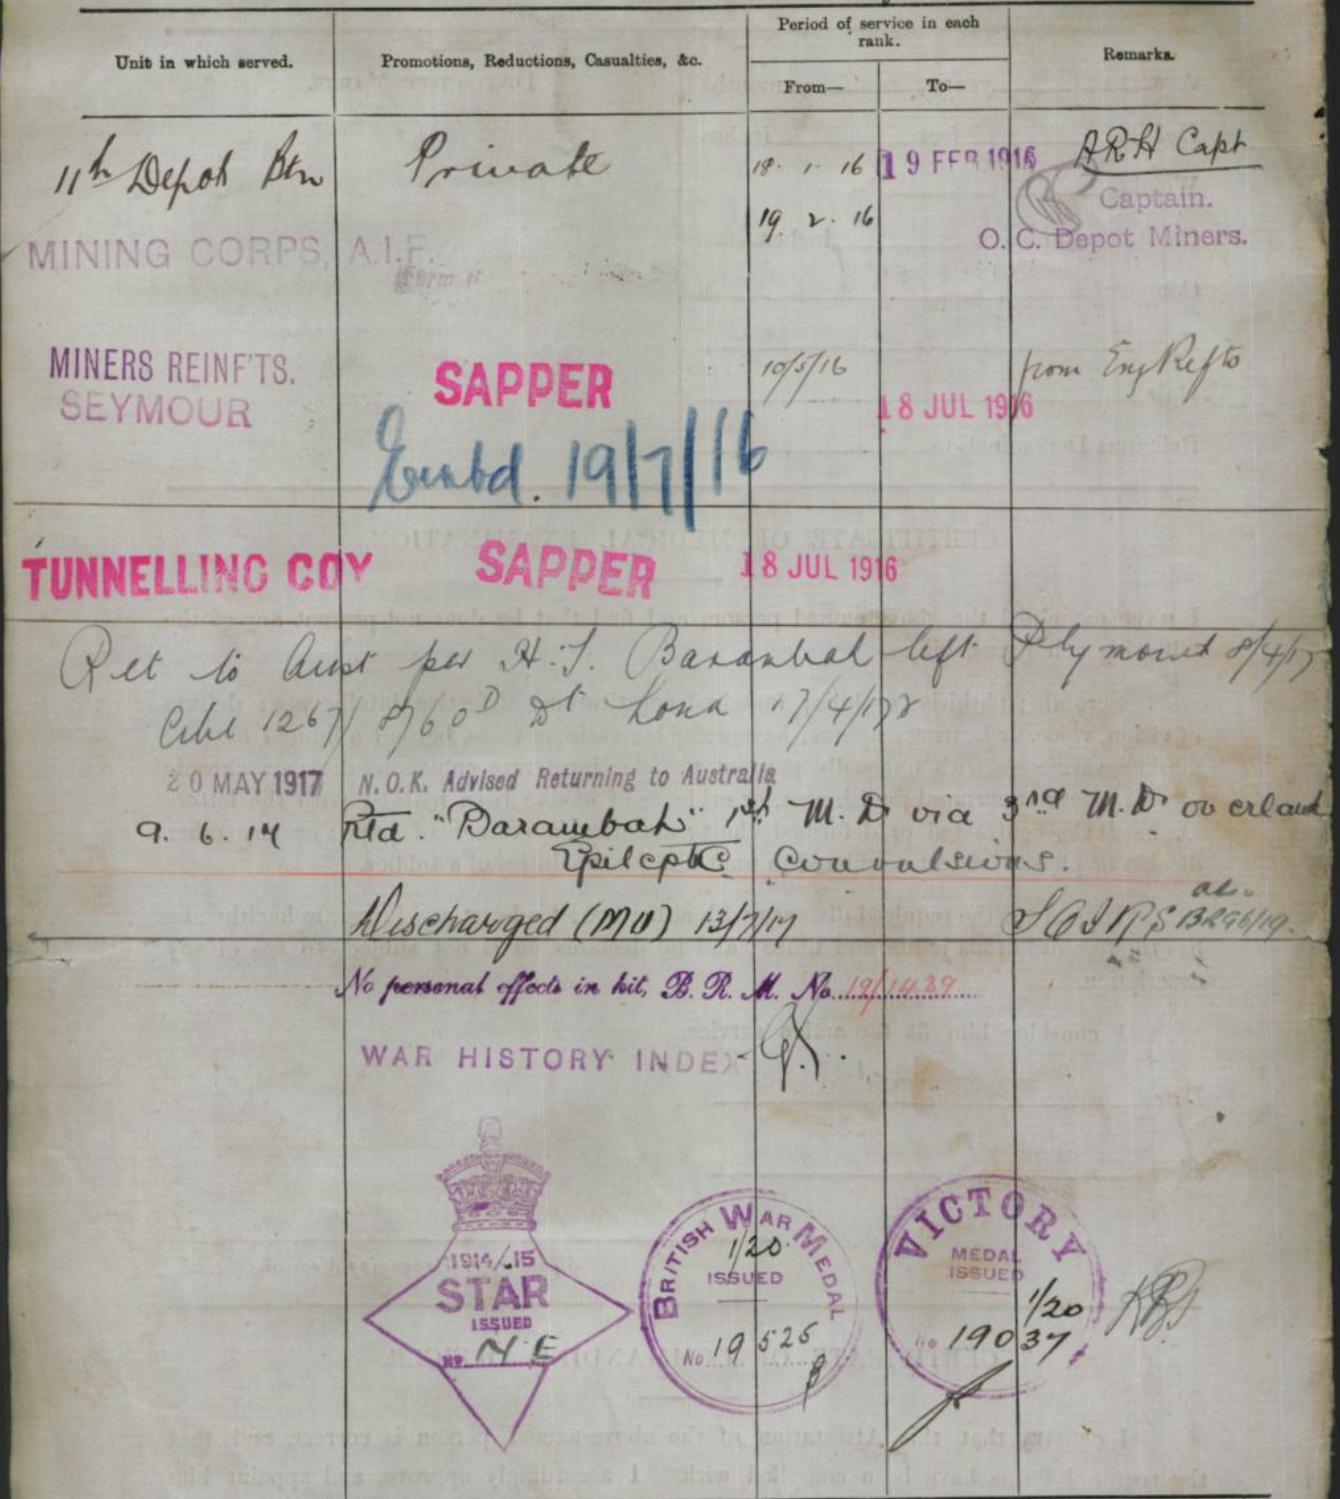 Unit in which served.
Promotions, Reductions, Casualties, &c.
Period of service in each
rank.
From—
To—
Remarks.
11th Depot Btn Private 18. 1. 16 19 FEB 1916 ARH Capt
19. 2. 16 Captain.
MINING CORPS, A.I.F. O. C. Depot Miners.
MINERS REINF'TS. SAPPER 10/5/16 from Eng Refts
SEYMOUR 18 JUL 1916
Embd. 19/7/16
TUNNELLING COY SAPPER 18 JUL 1916
Ret to Aust per H.S. Barambah left Plymouth 8/4/17
Cable 1267/ Dt Lond 17/4/17
20 MAY 1917 N.O.K. Advised Returning to Australia
9. 6. 17 Rtd. "Barambah" 1st M. D via 3rd M. D overland
Epileptic Convulsions.
Discharged (MU) 13/7/17
No personal effects in kit, B. R. M. No. 19/1439
WAR HISTORY INDEX
1914/15
STAR
ISSUED
No. N.E
BRITISH WAR MEDAL
1/20
ISSUED
No 19525
VICTORY
MEDAL
ISSUED
1/20
No 19037